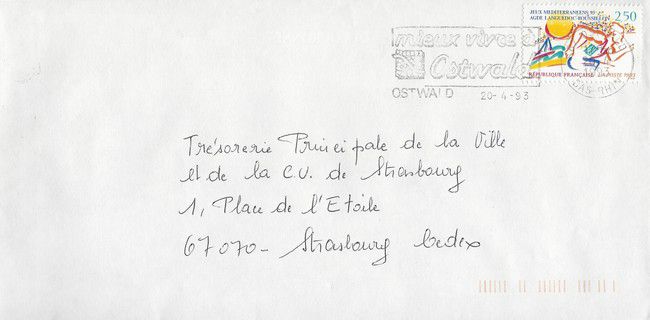 JEUX MEDITERRANEENS 93
AGDE LANGUEDOC-ROUSSILLON
2,50
RÉPUBLIQUE FRANÇAISE LA POSTE 1993
mieux vivre à
Ostwald
OSTWALD 20-4-93
BAS-RHIN
Trésorerie Principale de la Ville
et de la C.U. de Strasbourg
1, Place de l'Etoile
67070 - Strasbourg Cedex